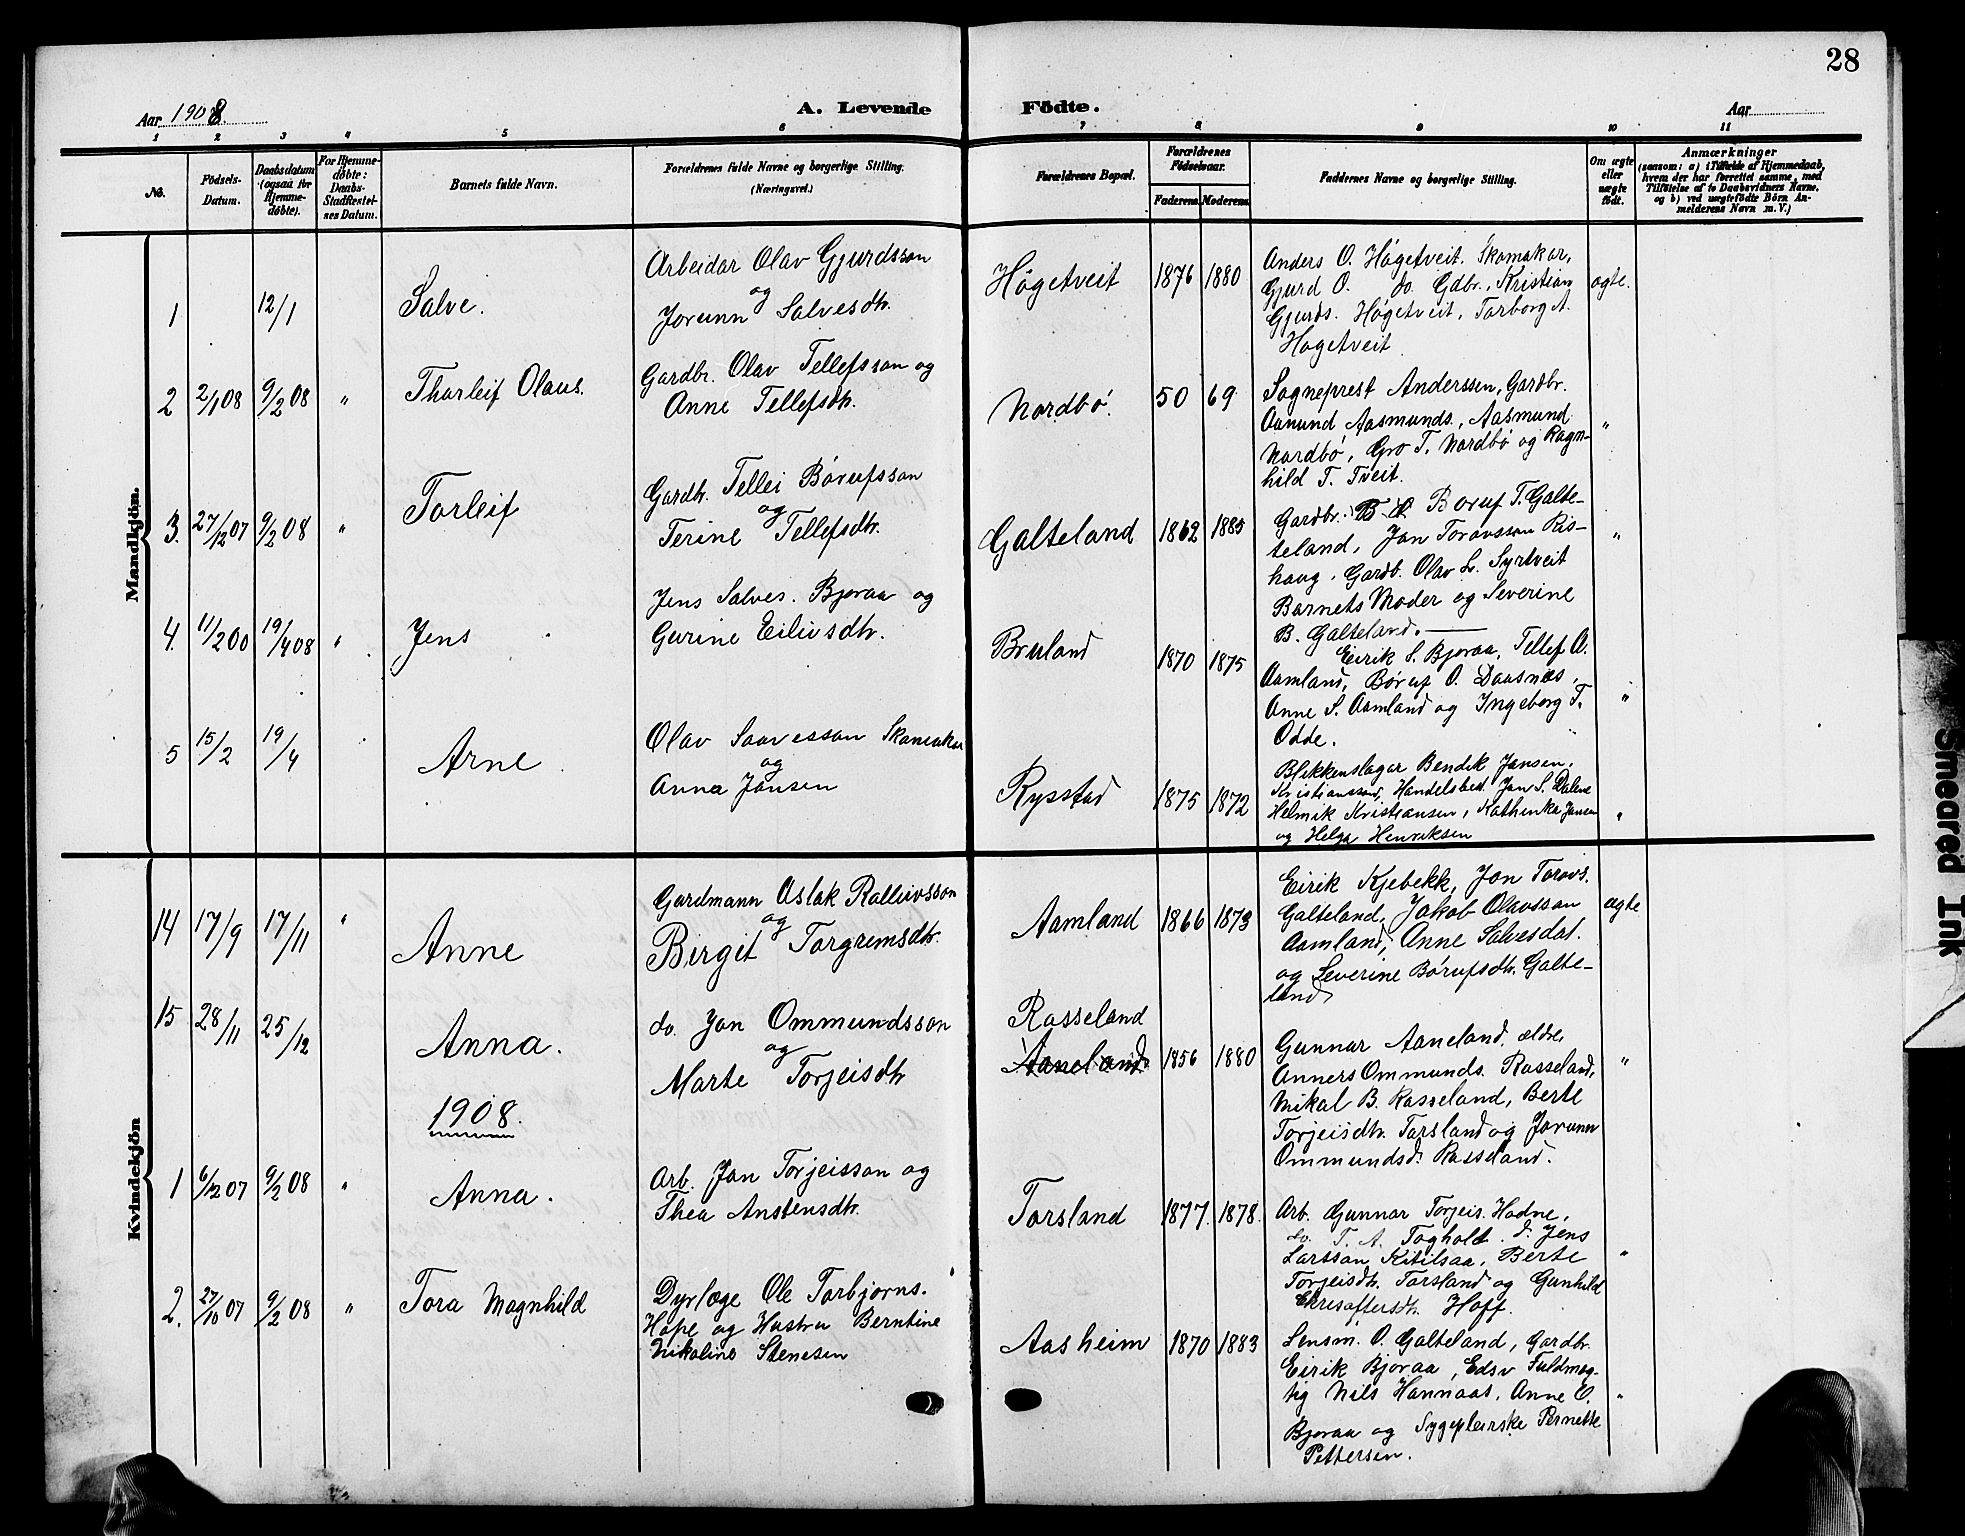 28
Aar 1908. A. Levende Födte. Aar
1 2 3 4 5 6 7 8 9 10 11
No.
Födsels-
Datum.
Daabsdatum
(ogsaa for
Hjemme-
döbte).
For Hjemme-
döbte:
Daabs-
Stadfæstel-
ses Datum.
Barnets fulde Navn.
Forældrenes fulde Navne og borgerlige Stilling.
(Næringsvei.)
Forældrenes Bopæl.
Forældrenes
Födselsaar.
Faderens. Moderens.
Faddernes Navne og borgerlige Stilling.
Om ægte
eller
uægte
födt.
Anmærkninger
(saasom: a) i Tilfælde af Hjemmedaab,
hvem der har forrettet samme, med
Tilföielse af to Daabsvidners Navne,
og b) ved uægtefödte Börn An-
melderens Navn m. V.)
Mandkjön.
1 12/1 Salve.
Arbeidar Olav Gjurdsson
og
Jorunn Salvesdtr.
Högetveit 1876 1880
Anders O. Högetveit. Skomakar,
Gjurd O. do. Gdbr., Kristian
Gjurds. Högetveit, Torborg A.
Högetveit
ægte.
2 2/1 08 9/2 08 " Thorleif Olaus.
Gardbr. Olav Tellefsson og
Anne Tellefsdtr.
Nordbö. 50 69
Sogneprest Anderssen, Gardbr.
Aanund Aasmunds., Aasmund
Nordbö, Gro T. Nordbö og Ragn-
hild T. Tveit.
"
3. 27/12 07 9/2 08 " Torleif
Gardbr. Tellei Börufsson
og
Terine Tellefsdtr.
Galteland 1862 1885
Gardbr. Boruf T. Galte-
teland, Jon Toravsson Ris-
haug, Gardb. Olav L. Syrtveit
Barnets Moder og Severine
B. Galteland.
"
4. 11/2 00 19/4 08 " Jens
Jens Salves. Bjoraa og
Gurine Eilivsdtr.
Bruland 1870 1875
Eirik S. Bjoraa, Tellef A.
Aamland, Böruf O. Daasnes,
Anne S. Aamland og Ingeborg T.
Odde.
"
5 15/2 19/4 Arne
Olav Saavesson Skomakar
og
Anna Jansen
Rysstad 1875 1872
Blikkenslagar Bendik Jansen,
Kristianssand, Handelsbest. Jon S. Dalene
Helmik Kristiansen, Kathinka Jansen
og Helga Henriksen
"
Kvindekjön
14 17/9 17/11 " Anne
Gardmann Aslak Ralleivsson
og
Birgit Torgrimsdtr.
Aamland 1866 1873
Eirik Kjebekk, Jon Toravs.
Galteland, Jakob Olavsson
Aamland, Anne Salvesdat.
og Severine Börufsdtr. Galte-
land
ægte
15 28/11 25/12 Anna.
do. Jon Ommundsson
og
Marte Torjeisdtr
Rasseland
Aaneland 1856 1880
Gunnar Aaneland, ældre,
Anners Ommunds. Rasseland,
Mikal B. Rasseland, Berte
Torjeisdtr. Torsland og Jorunn
Ommundsd. Rasseland.
"
1908.
1 6/12 07 9/2 08 " Anna.
Arb. Jon Torjeisson og
Thea Anstensdtr.
Torsland 1877. 1878.
Arb. Gunnar Torjeis. Hodne,
do. T. A. Togholt. d. Jens
Larsson Kitilsaa, Berte
Torjeisdtr. Torsland og Gunhild
Hoff.
"
2. 27/10 07 9/2 08 " Tora Magnhild
Dyrlæge Ole Torbjorns.
Hope og Hustru Berntine
Nikoline Stenesen
Aasheim 1870 1883
Lensm. O. Galteland, Gardbr.
Eirik Bjoraa, Edsv Fuldmæg-
tig Nils Hannaas, Anne O.
Bjoraa og Sygepleierske Pernette
Pettersen.
"
Smeared Ink